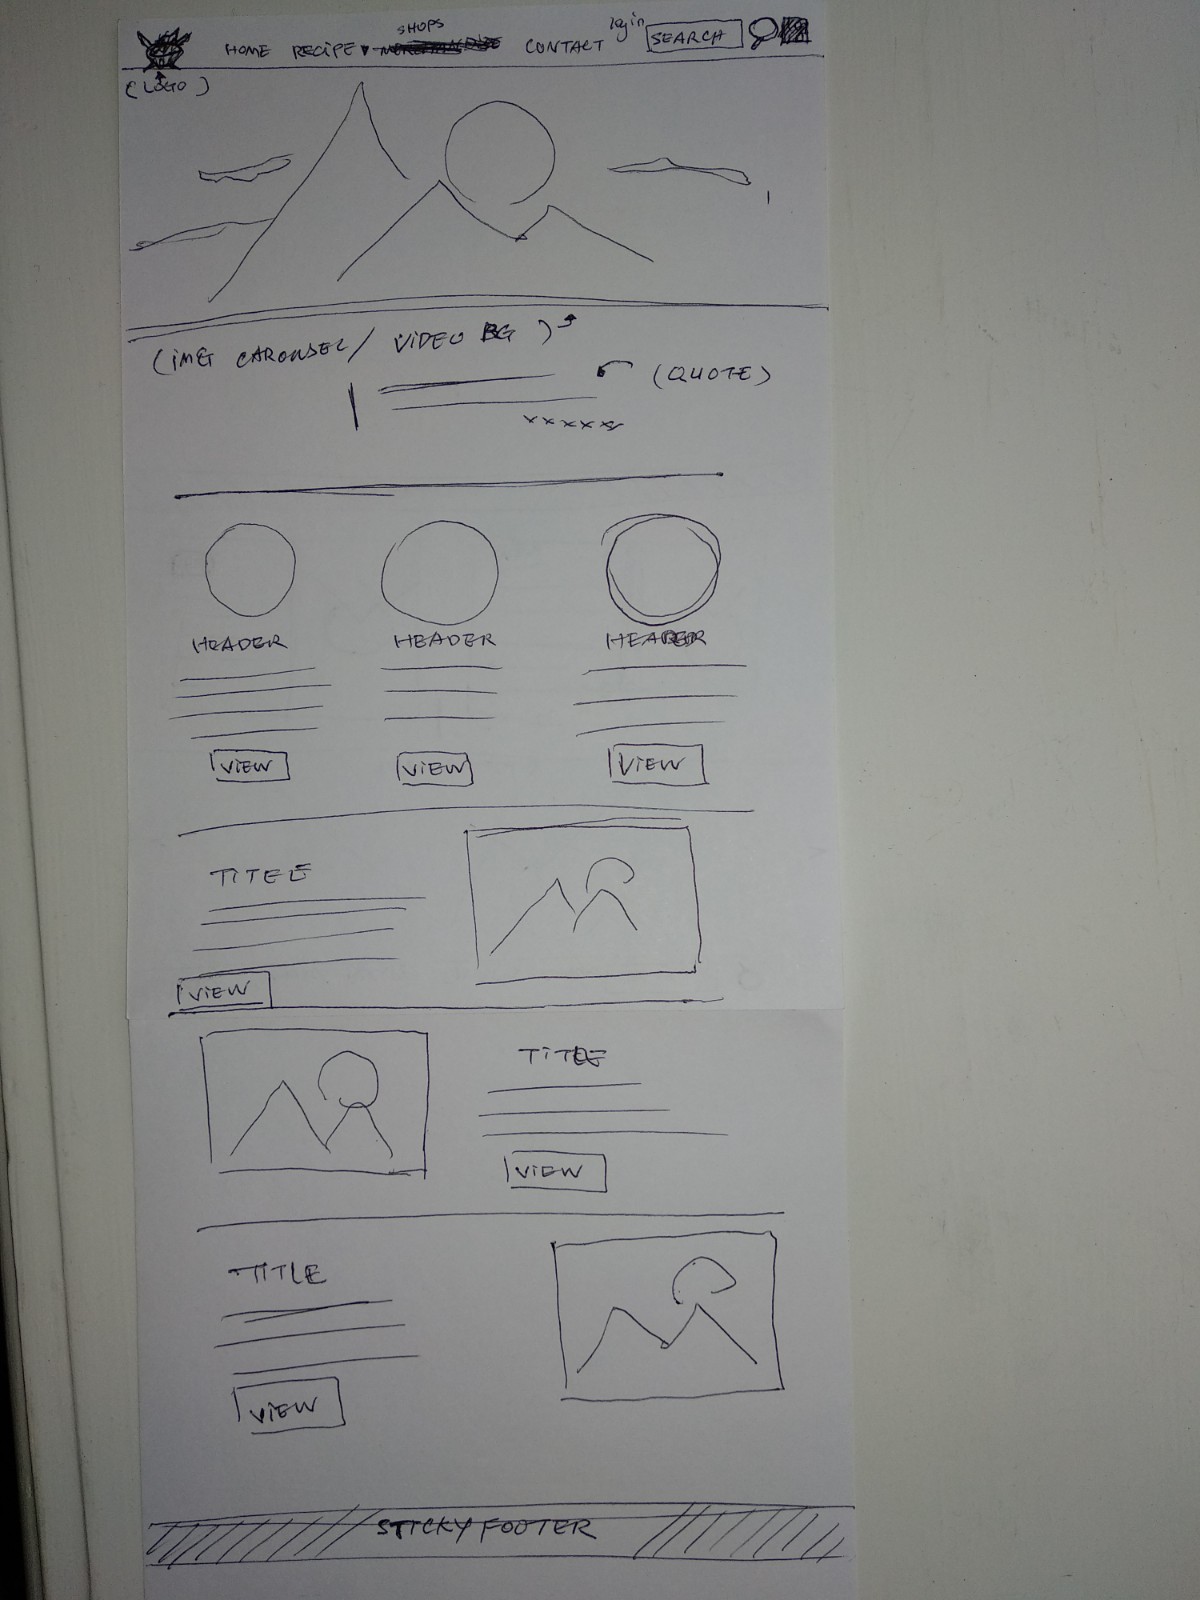 SHOPS
HOME RECIPE CONTACT login SEARCH
(LOGO)
(IMG CAROUSEL/ VIDEO BG)
(QUOTE)
xxxxxx
HEADER HEADER HEADER
VIEW VIEW VIEW
TITLE
VIEW
TITLE
VIEW
TITLE
VIEW
STICKY FOOTER